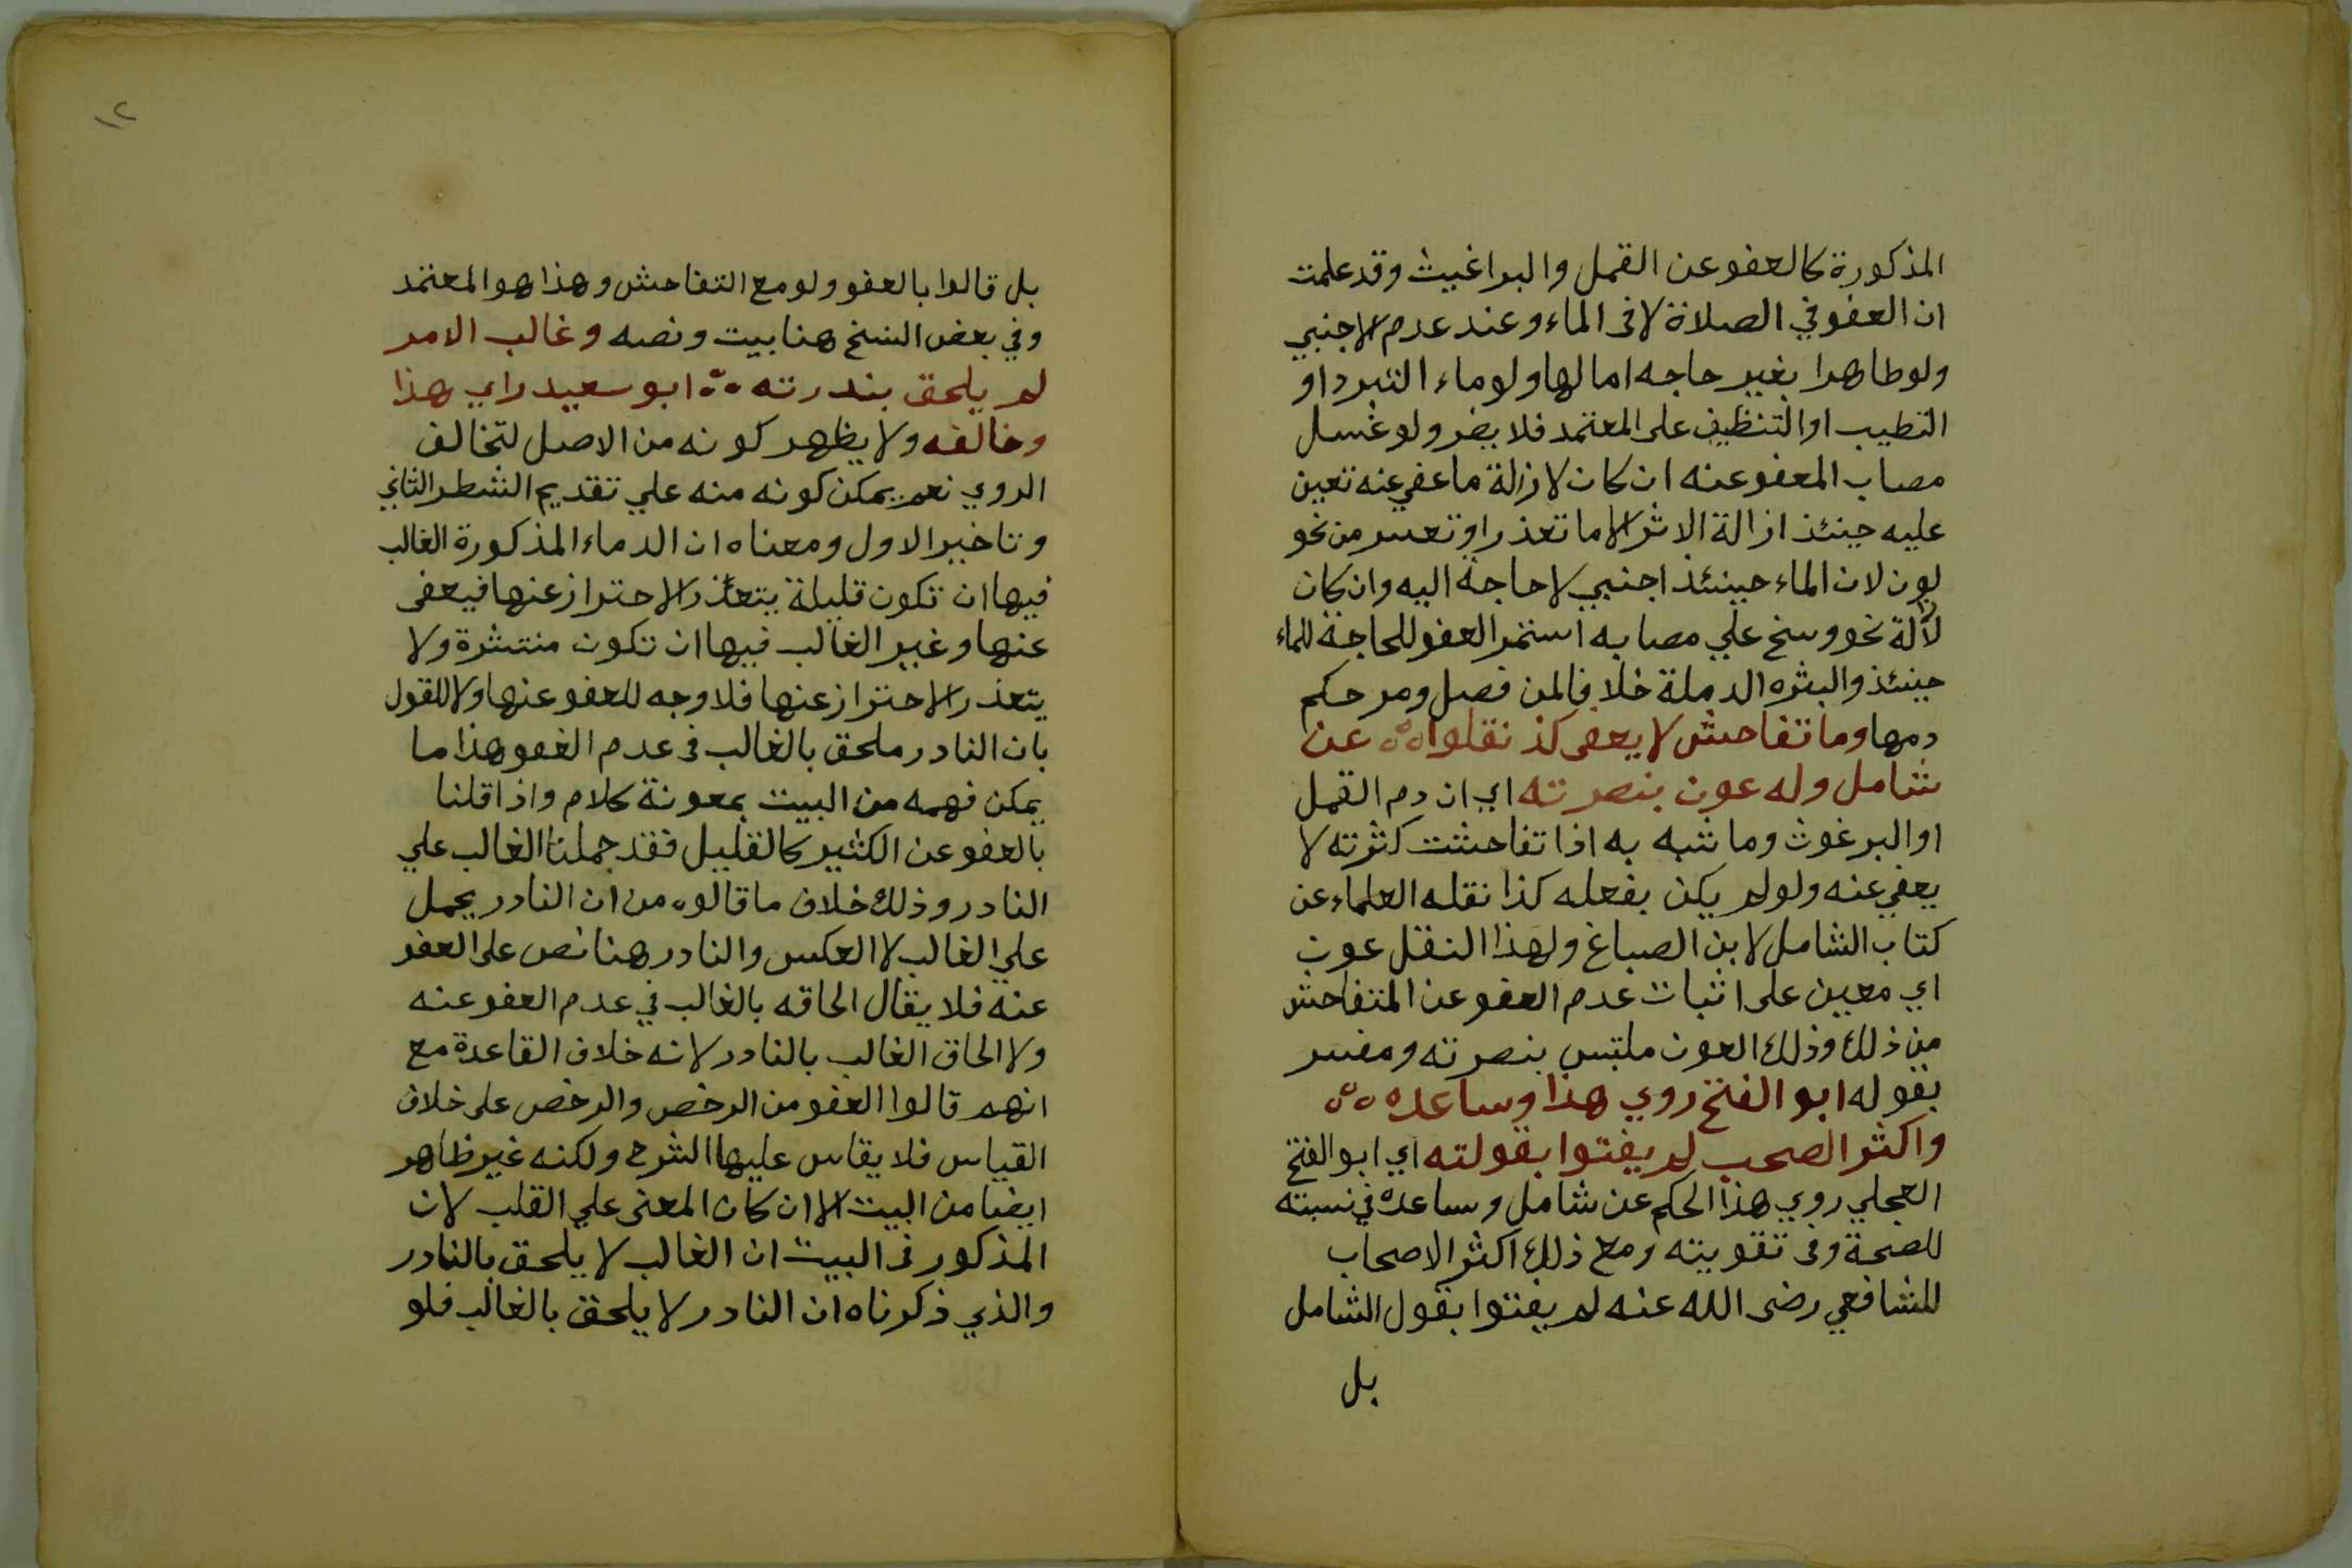 المذكورة كالعفو عن القمل والبراغيث وقد علمت
ان العفو في الصلاة لا فى الماء وعند عدم الاجنبي
ولو طاهرا بغير حاجه اما لها ولو ماء التبرد او
التطيب او التنظيف على المعتمد فلا يضر ولو غسل
مصاب المعفو عنه ان كان لازالة ما عفي عنه تعين
عليه حينئذ ازالة الاثر الا ما تعذر او تعسر من نحو
لون لان الماء حينئذ اجنبي لا حاجة اليه وان كان
لازالة نحو وسخ علي مصابه استمر العفو للحاجة للماء
حينئذ والبثره الدملة خلافا لمن فصل ومر حكم
دمها وما تفاحش لا يعفى كذ نقلوا ٥٥ عن
شامل وله عون بنصرته اي ان دم القمل
او البرغوث وما شبه به اذا تفاحشت كثرته لا
يعفي عنه ولو لم يكن بفعله كذا نقله العلماء عن
كتاب الشامل لابن الصباغ ولهذا النقل عون
اي معين على اثبات عدم العفو عن المتفاحش
من ذلك وذلك العون ملتبس بنصرته ومفسر
بقوله ابو الفتح روي هذا وساعده ٥٥
واكثر الصحب لم يفتوا بقولته اي ابو الفتح
العجلي روي هذا الحكم عن شامل وساعده في نسبته
للصحة وفى تقويته ومع ذلك اكثر الاصحاب
للشافعي رضى الله عنه لم يفتوا بقول الشامل
بل
١٢
بل قالوا بالعفو ولو مع التفاحش وهذا هو المعتمد
وفي بعض النسخ هنا بيت ونصه وغالب الامر
لم يلحق بندرته ٥٥ ابو سعيد راي هذا
وخالفه ولا يظهر كونه من الاصل لتخالف
الروي نعم يمكن كونه منه علي تقديم الشطر الثاني
وتاخير الاول ومعناه ان الدماء المذكورة الغالب
فيها ان تكون قليلة يتعذر الاحتراز عنها فيعفى
عنها وغير الغالب فيها ان تكون منتشرة ولا
يتعذر الاحتراز عنها فلا وجه للعفو عنها ولا للقول
بان النادر ملحق بالغالب فى عدم العفو هذا ما
يمكن فهمه من البيت بمعونة كلام واذا قلنا
بالعفو عن الكثير كالقليل فقد حملنا الغالب علي
النادر وذلك خلاف ما قالوه من ان النادر يحمل
علي الغالب لا العكس والنادر هنا نص على العفو
عنه فلا يقال الحاقه بالغالب في عدم العفو عنه
ولا الحاق الغالب بالنادر لانه خلاف القاعدة مع
انهم قالوا العفو من الرخص والرخص على خلاف
القياس فلا يقاس عليها الشرح ولكنه غير ظاهر
ايضا من البيت الا ان كان المعنى علي القلب لان
المذكور فى البيت ان الغالب لا يلحق بالنادر
والذي ذكرناه ان النادر لا يلحق بالغالب فلو